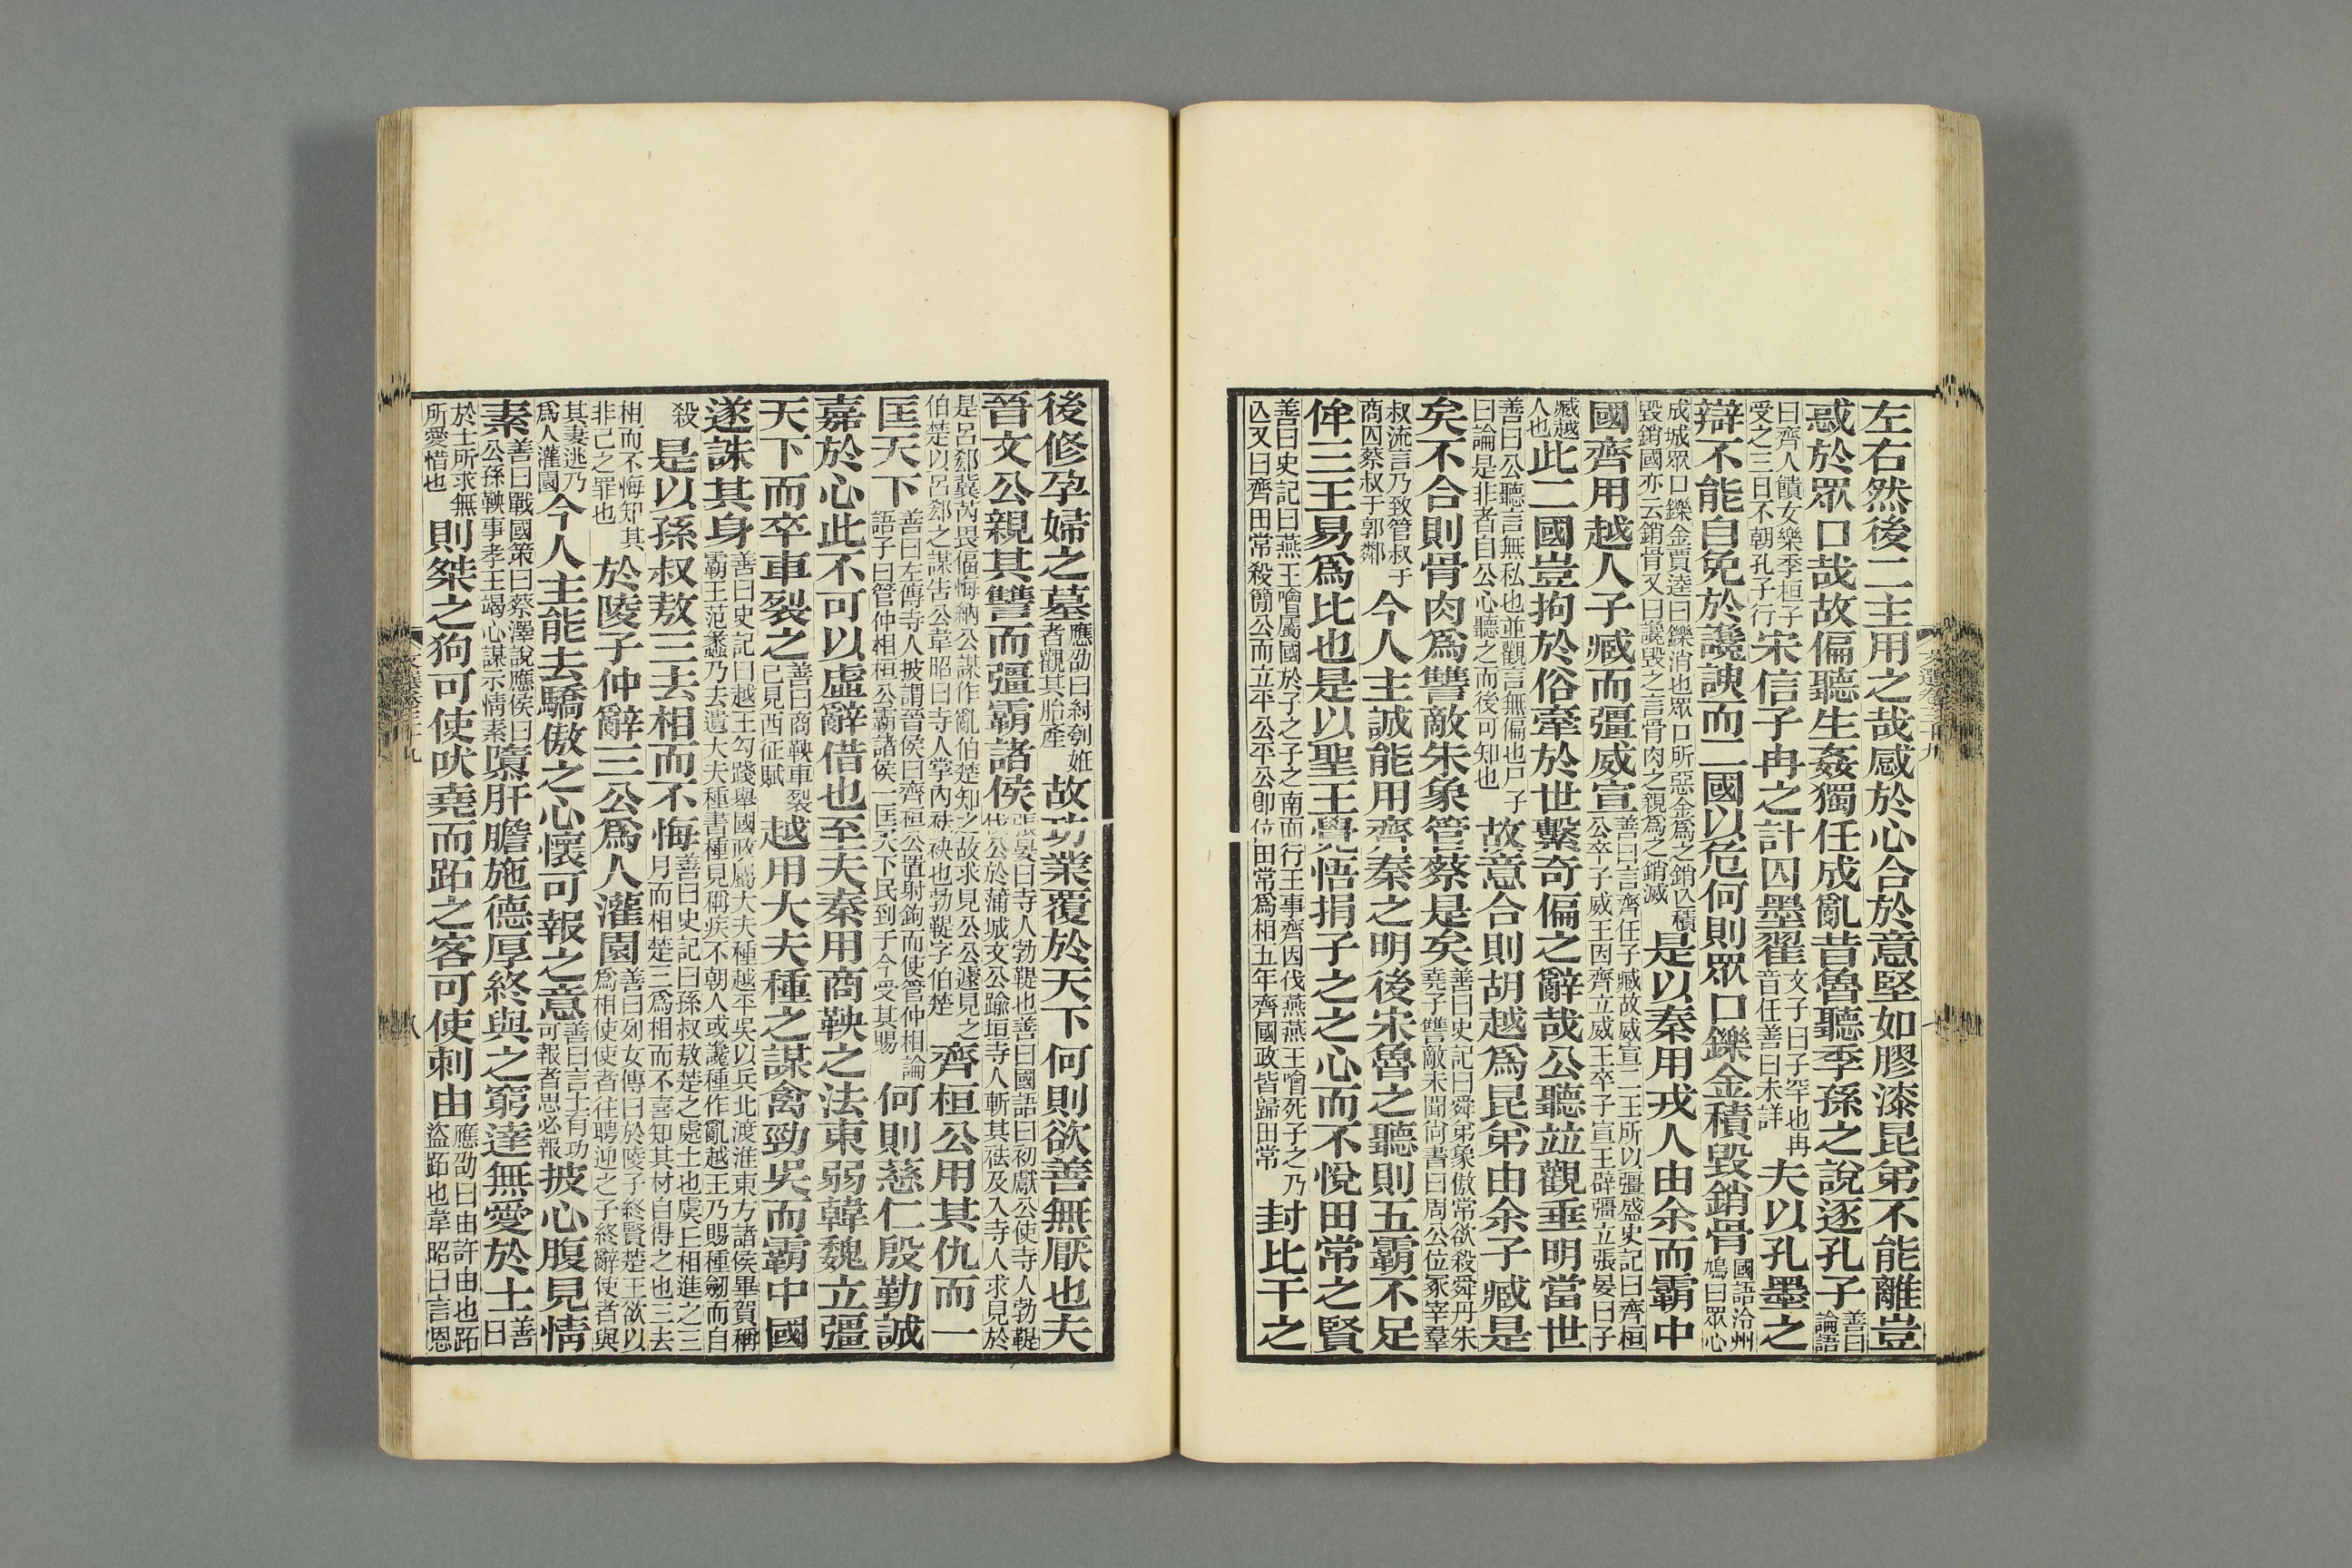 左右然後二主用之哉感於心合於意堅如膠漆昆弟不能離豈
惑於眾口哉故偏聽生姦獨任成亂昔魯聽季孫之說逐孔子善曰論語
曰齊人饋女樂季桓子受之三日不朝孔子行宋信子冉之計囚墨翟文子曰子罕也冉音任善曰未詳夫以孔墨之
辯不能自免於讒諛而二國以危何則眾口鑠金積毀銷骨國語泠州鳩曰眾心
成城眾口鑠金賈逵曰鑠消也眾口所惡金為之銷亾積毀銷國亦云銷骨又曰讒毀之言骨肉之親為之銷滅是以秦用戎人由余而霸中
國齊用越人子臧而彊威宣善曰言齊任子臧故威宣二王所以彊盛史記曰齊桓公卒子威王因齊立威王卒子宣王辟彊立張晏曰子
臧越人也此二國豈拘於俗牽於世繫奇偏之辭哉公聽竝觀垂明當世
善曰公聽言無私也並觀言無偏也尸子曰論是非者自公心聽之而後可知也故意合則胡越爲昆弟由余子臧是
矣不合則骨肉爲讐敵朱象管蔡是矣善曰史記曰舜弟象傲常欲殺舜丹朱堯子讐敵未聞尚書曰周公位冢宰羣
叔流言乃致管叔于商囚蔡叔于郭鄰今人主誠能用齊秦之明後宋魯之聽則五霸不足
侔三王易爲比也是以聖王覺悟捐子之之心而不悅田常之賢
善曰史記曰燕王噲屬國於子之子之南面行王事齊因伐燕燕王噲死子之乃亾又曰齊田常殺簡公而立平公平公卽位田常爲相五年齊國政皆歸田常封比干之
後修孕婦之墓應劭曰紂刳妊者觀其胎產故功業覆於天下何則欲善無厭也夫
晉文公親其讐而彊霸諸侯張晏曰寺人勃鞮也善曰國語曰初獻公使寺人勃鞮伐公於蒲城文公踰垣寺人斬其袪及入寺人求見於
是呂郄冀芮畏偪悔納公謀作亂伯楚知之故求見公公遽見之伯楚以呂郄之謀告公韋昭曰寺人掌內袪袂也勃鞮字伯楚齊桓公用其仇而一
匡天下善曰左傳寺人披謂晉侯曰齊桓公置射鉤而使管仲相論語子曰管仲相桓公霸諸侯一匡天下民到于今受其賜何則慈仁殷勤誠
嘉於心此不可以虛辭借也至夫秦用商鞅之法東弱韓魏立彊
天下而卒車裂之善曰商鞅車裂已見西征賦越用大夫種之謀禽勁吳而霸中國
遂誅其身善曰史記曰越王勾踐舉國政屬大夫種越平吳以兵北渡淮東方諸侯畢賀稱霸王范蠡乃去遺大夫種書種見稱疾不朝人或讒種作亂越王乃賜種劒而自
殺是以孫叔敖三去相而不悔善曰史記曰孫叔敖楚之處士也虞丘相進之三月而相楚三爲相而不喜知其材自得之也三去
相而不悔知其非己之罪也於陵子仲辭三公爲人灌園善曰列女傳曰於陵子終賢楚王欲以爲相使使者往聘迎之子終辭使者與
其妻逃乃爲人灌園今人主能去驕傲之心懷可報之意善曰言士有功可報者思必報披心腹見情
素善曰戰國策曰蔡澤說應侯曰公孫鞅事孝王竭心謀示情素隳肝膽施德厚終與之窮達無愛於士善曰
於士所求無所愛惜也則桀之狗可使吠堯而跖之客可使刺由應劭曰由許由也跖盜跖也韋昭曰言恩